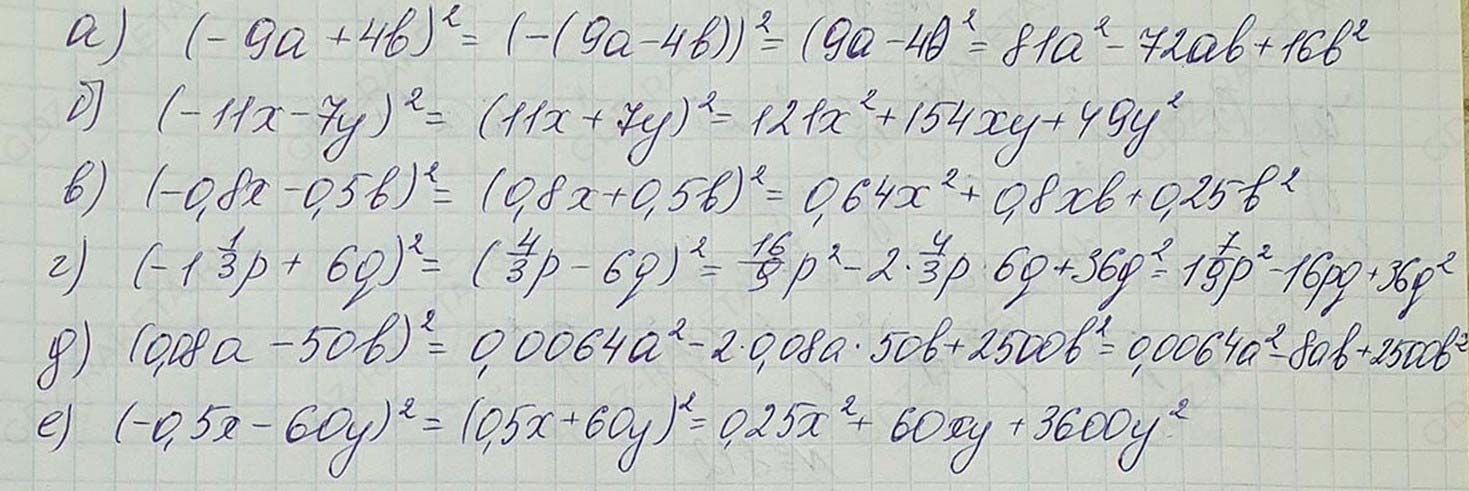 а) (-9a+4b)²=(-(9a-4b))²=(9a-4b)²=81a²-72ab+16b²
б) (-11x-7y)²=(11x+7y)²=121x²+154xy+49y²
в) (-0,8x-0,5b)²=(0,8x+0,5b)²=0,64x²+0,8xb+0,25b²
г) (-1 1/3p+6q)²=(4/3p-6q)²=16/9p²-2·4/3p·6q+36q²=1 7/9p²-16pq+36q²
д) (0,08a-50b)²=0,0064a²-2·0,08a·50b+2500b²=0,0064a²-8ab+2500b²
е) (-0,5x-60y)²=(0,5x+60y)²=0,25x²+60xy+3600y²